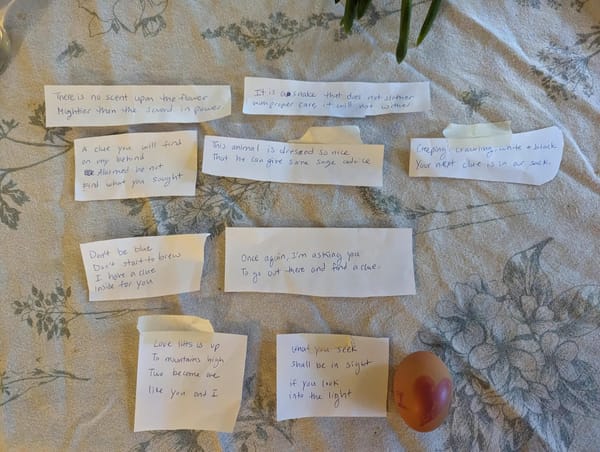 There is no scent upon the flower
Mightier than the sword in power
It is a snake that does not slither
With proper care, it will not wither
A clue you will find
on my behind
Alarmed be not
Find what you sought
This animal is dressed so nice
That he can give some sage advice
Creeping, crawling, white + black
Your next clue is in our sack.
Don't be blue
Don't start to brew
I have a clue
inside for you
Once again, I'm asking you
To go out there and find a clue.
Love lifts is up
To mountains high
Two become one
like you and I
What you seek
shall be in sight
if you look
into the light
I